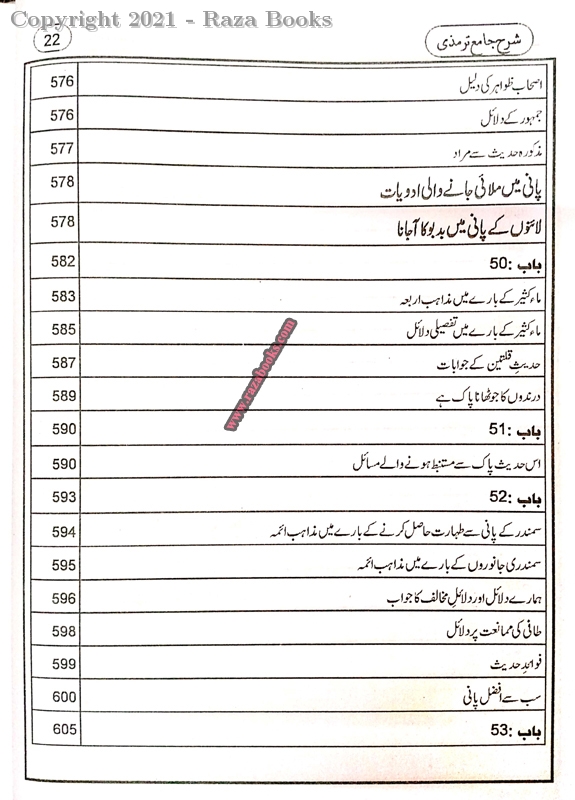 Copyright 2021 - Raza Books
شرح جامع ترمذی
22
اصحاب ظواہر کی دلیل 576
جمہور کے دلائل 576
مذکورہ حدیث سے مراد 577
پانی میں ملائی جانے والی ادویات 578
لائنوں کے پانی میں بدبو کا آجانا 578
باب :50 582
ماء کثیر کے بارے میں مذاہب اربعہ 583
ماء کثیر کے بارے میں تفصیلی دلائل 585
حدیثِ قلتین کے جوابات 587
درندوں کا جوٹھا ناپاک ہے 589
باب :51 590
اس حدیث پاک سے مستنبط ہونے والے مسائل 590
باب :52 593
سمندر کے پانی سے طہارت حاصل کرنے کے بارے میں مذاہب ائمہ 594
سمندری جانوروں کے بارے میں مذاہب ائمہ 595
ہمارے دلائل اور دلائلِ مخالف کا جواب 596
طافی کی ممانعت پر دلائل 598
فوائدِ حدیث 599
سب سے افضل پانی 600
باب :53 605
www.razabooks.com